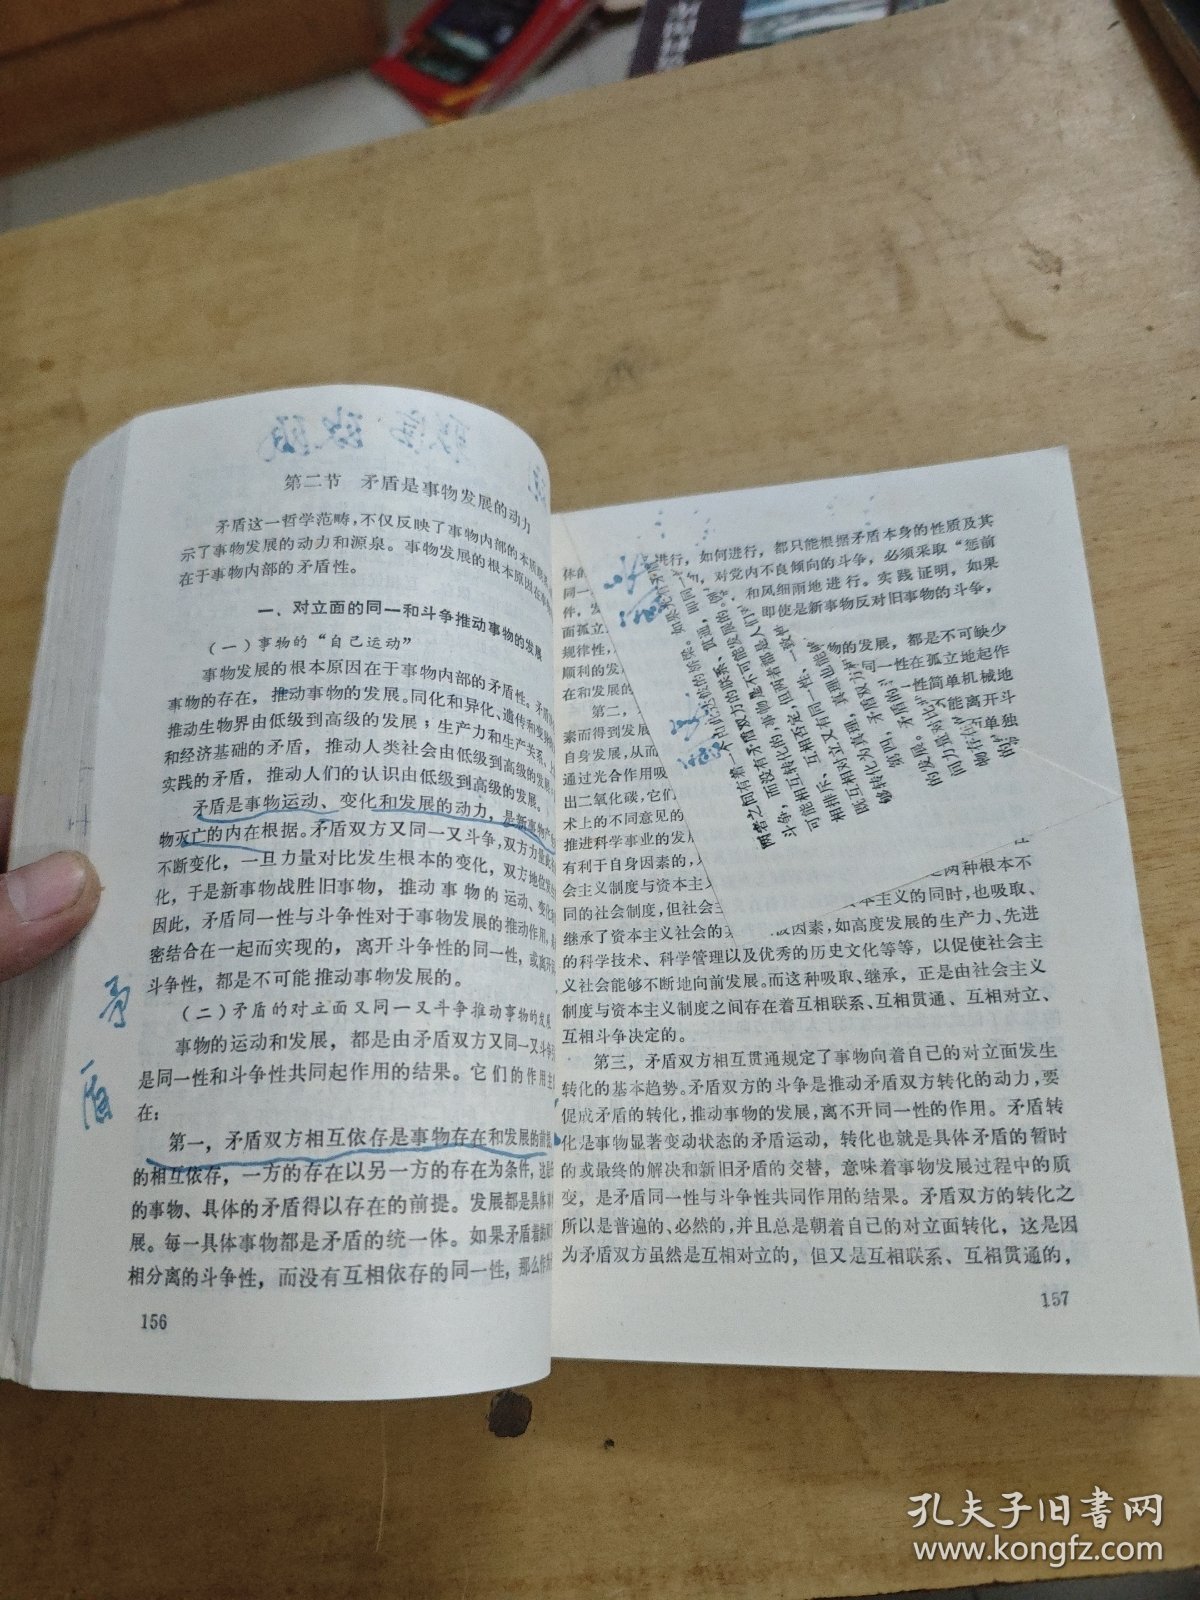 第二节 矛盾是事物发展的动力
矛盾这一哲学范畴，不仅反映了事物内部的本质
示了事物发展的动力和源泉。事物发展的根本原因
在于事物内部的矛盾性。
一、对立面的同一和斗争推动事物的发展
（一）事物的“自己运动”
事物发展的根本原因在于事物内部的矛盾性。矛盾
事物的存在，推动事物的发展。同化和异化、遗传和变
推动生物界由低级到高级的发展；生产力和生产关系、上
和经济基础的矛盾，推动人类社会由低级到高级的发展
实践的矛盾，推动人们的认识由低级到高级的发展。
矛盾是事物运动、变化和发展的动力，是新事物产
物灭亡的内在根据。矛盾双方又同一又斗争，双方力量
不断变化，一旦力量对比发生根本的变化，双方地位
化，于是新事物战胜旧事物，推动事物的运动、变化
因此，矛盾同一性与斗争性对于事物发展的推动作用，
密结合在一起而实现的，离开斗争性的同一性，或离开
斗争性，都是不可能推动事物发展的。
（二）矛盾的对立面又同一又斗争推动事物的发展
事物的运动和发展，都是由矛盾双方又同一又斗争
是同一性和斗争性共同起作用的结果。它们的作用主
在：
第一，矛盾双方相互依存是事物存在和发展的前提。
的相互依存，一方的存在以另一方的存在为条件，这是
的事物、具体的矛盾得以存在的前提。发展都是具体事
展。每一具体事物都是矛盾的统一体。如果矛盾着的双
相分离的斗争性，而没有互相依存的同一性，那么作为
156
矛
盾
进行，如何进行，都只能根据矛盾本身的性质及其
，对党内不良倾向的斗争，必须采取“惩前
和风细雨地进行。实践证明，如果
即使是新事物反对旧事物的斗争，
物的发展，都是不可缺少
同一性在孤立地起作
一性简单机械地
不能离开斗
单独
体的
同一
件，发
面孤立
规律性，
顺利的发
在和发展的
第二，
素而得到发展
自身发展，从而
通过光合作用吸
出二氧化碳，它们
术上的不同意见的
推进科学事业的发展
有利于自身因素的，
会主义制度与资本主义 是两种根本不
同的社会制度，但社会主 本主义的同时，也吸取、
继承了资本主义社会的 因素，如高度发展的生产力、先进
的科学技术、科学管理以及优秀的历史文化等等，以促使社会主
义社会能够不断地向前发展。而这种吸取、继承，正是由社会主义
制度与资本主义制度之间存在着互相联系、互相贯通、互相对立、
互相斗争决定的。
第三，矛盾双方相互贯通规定了事物向着自己的对立面发生
转化的基本趋势。矛盾双方的斗争是推动矛盾双方转化的动力，要
促成矛盾的转化，推动事物的发展，离不开同一性的作用。矛盾转
化是事物显著变动状态的矛盾运动，转化也就是具体矛盾的暂时
的或最终的解决和新旧矛盾的交替，意味着事物发展过程中的质
变，是矛盾同一性与斗争性共同作用的结果。矛盾双方的转化之
所以是普遍的、必然的，并且总是朝着自己的对立面转化，这是因
为矛盾双方虽然是互相对立的，但又是互相联系、互相贯通的，
157
孔夫子旧书网
www.kongfz.com